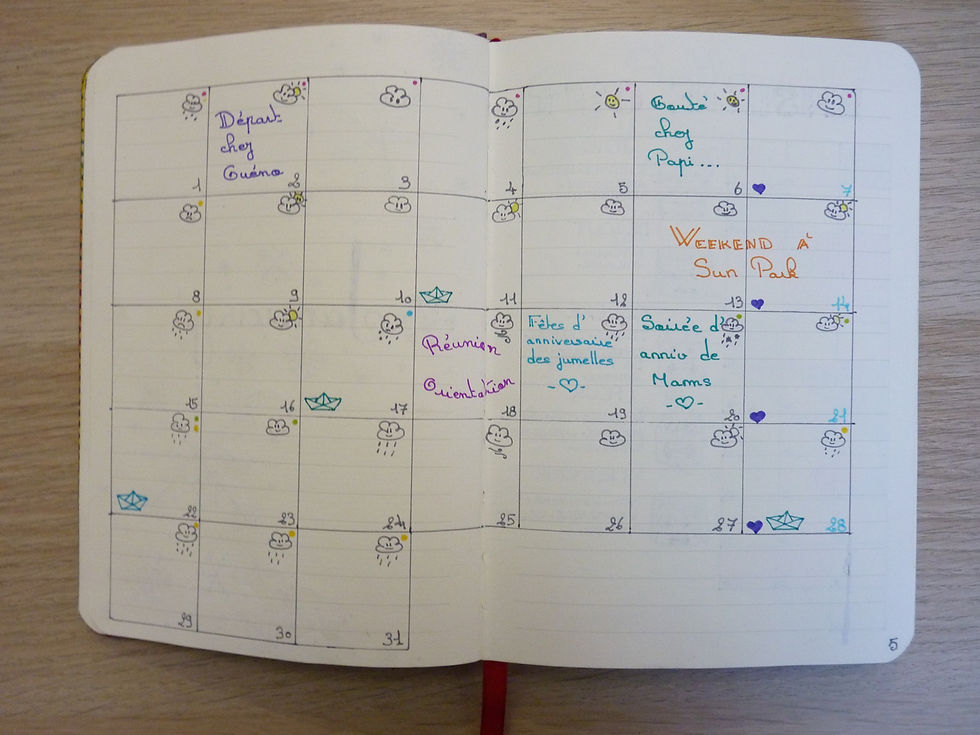 Départ
chez
Guéno
1
2
3
4
5
Gouté
chez
Papi...
6
7
8
9
10
11
12
WEEKEND À
Sun Park
13
14
15
16
17
Réunion
Orientation
18
Fêtes d'
anniversaire
des jumelles
19
Soirée d'
anniv de
Mams
20
21
22
23
24
25
26
27
28
29
30
31
5